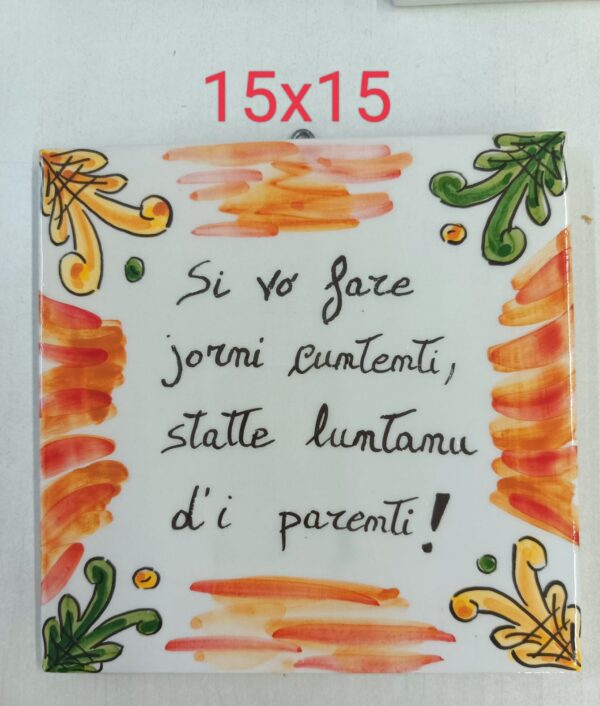 15x15
Si vo' fare
jorni cuntenti,
statte luntanu
d'i parenti!